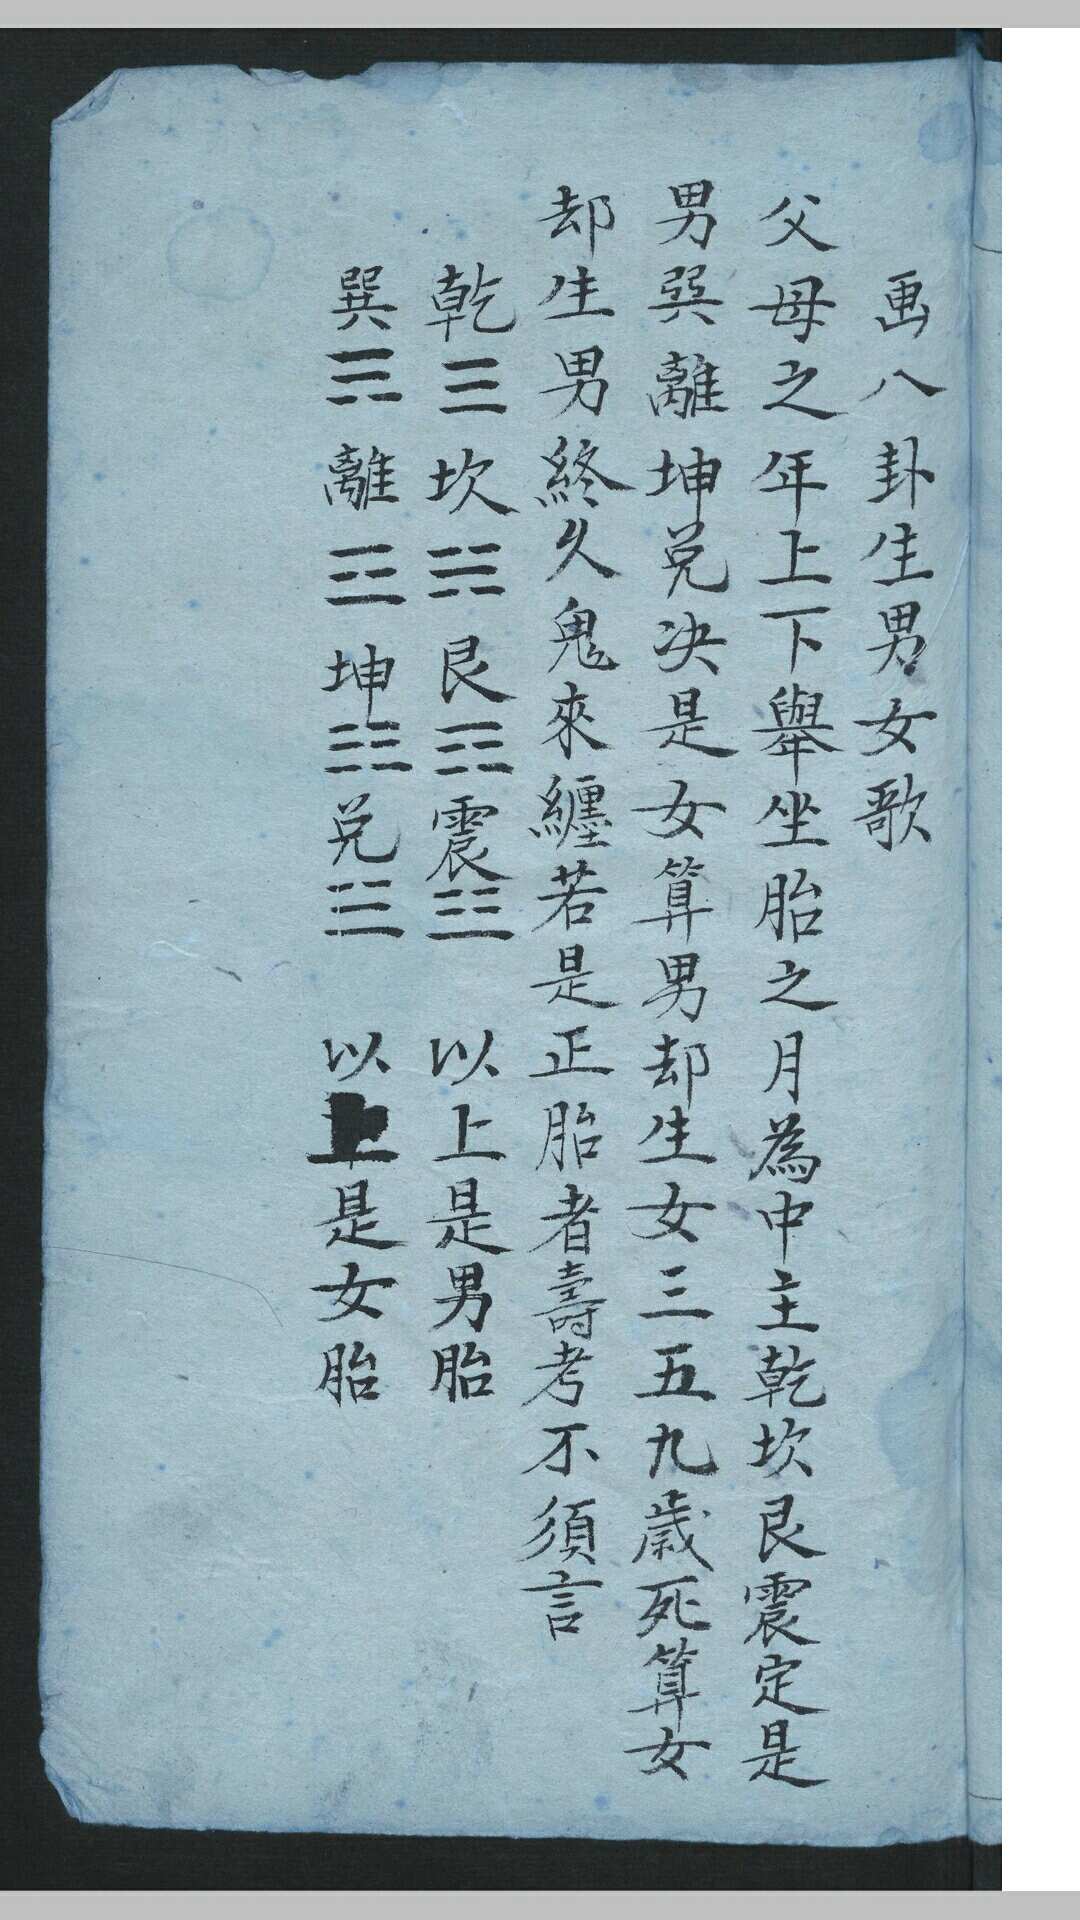 画八卦生男女歌
父母之年上下舉坐胎之月為中主乾坎艮震定是
男巽離坤兑决是女算男却生女三五九歲死算女
却生男終久鬼來纏若是正胎者壽考不須言
乾☰坎☵艮☶震☳以上是男胎
巽☴離☲坤☷兑☱以上是女胎